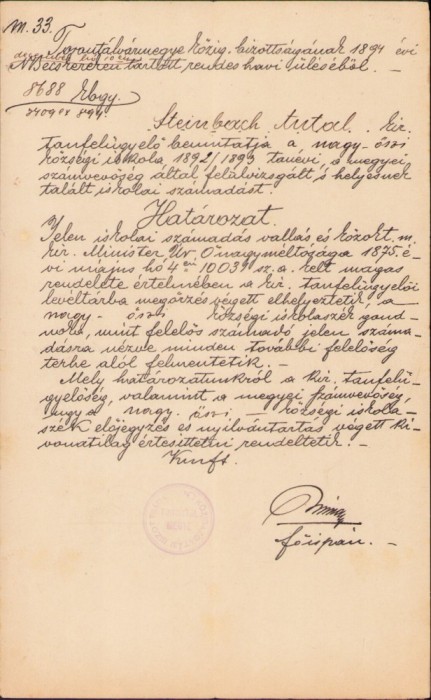 M. 33.
Torontálvármegye közig. bizottságának 1894 évi
deczember hó 10 én
NBecskereken tartott rendes havi üléséből. —
8688 kbgy.
894.
Steinbach Antal kir.
tanfelügyelő bemutatja a nagy-őszi
községi iskola 1892/1893 tanévi, a megyei
számvevőség által felülvizsgált s helyesnek
talált iskolai számadást.
Határozat.
Jelen iskolai számadás vallás és közokt. m.
kir. Minister Úr Ő nagyméltósága 1875 é-
vi május hó 4én 10031 sz. a. kelt magas
rendelete értelmében a kir. tanfelügyelői
levéltárba megőrzés végett elhelyeztetik, s a
nagy-őszi községi iskolaszék gond-
noka, mint felelős számadó jelen száma-
dásra nézve minden további felelőség
terhe alól felmentetik. —
Mely határozatunkról a kir. tanfelü-
gyelőség, valamint a megyei számvevőség,
úgy a nagy-őszi — községi iskola-
szék előjegyzés és nyilvántartás végett ki-
vonatilag értesíttetni rendeltetik. —
Kmft.
főispán. —